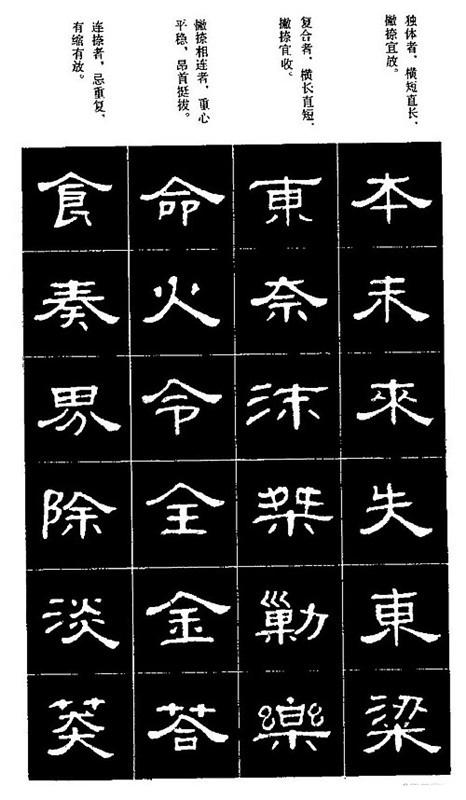 独体者，横短直长，
撇捺宜放。
复合者，横长直短，
撇捺宜收。
撇捺相连者，重心
平稳，昂首挺拔。
连捺者，忌重复，
有缩有放。
本未來失東梁
東奈沫桀勦樂
命火令全金荅
食奏界除淡葵